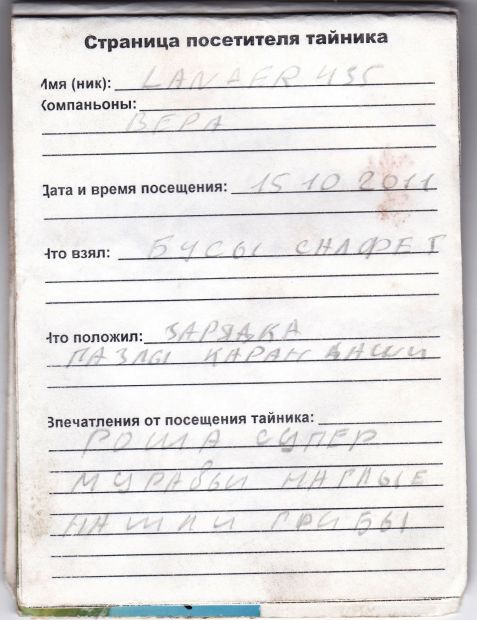 Страница посетителя тайника
Имя (ник): LANDER 435
Компаньоны:
ВЕРА
Дата и время посещения: 15 10 2011
Что взял: БУСЫ СНАФЕТ
Что положил: ЗАРЯДКА
ПАЗЛЫ КАРАНДАШИ
Впечатления от посещения тайника:
РОЩА СУПЕР
МУРАВЬИ НАГЛЫЕ
НАШЛИ ГРИБЫ